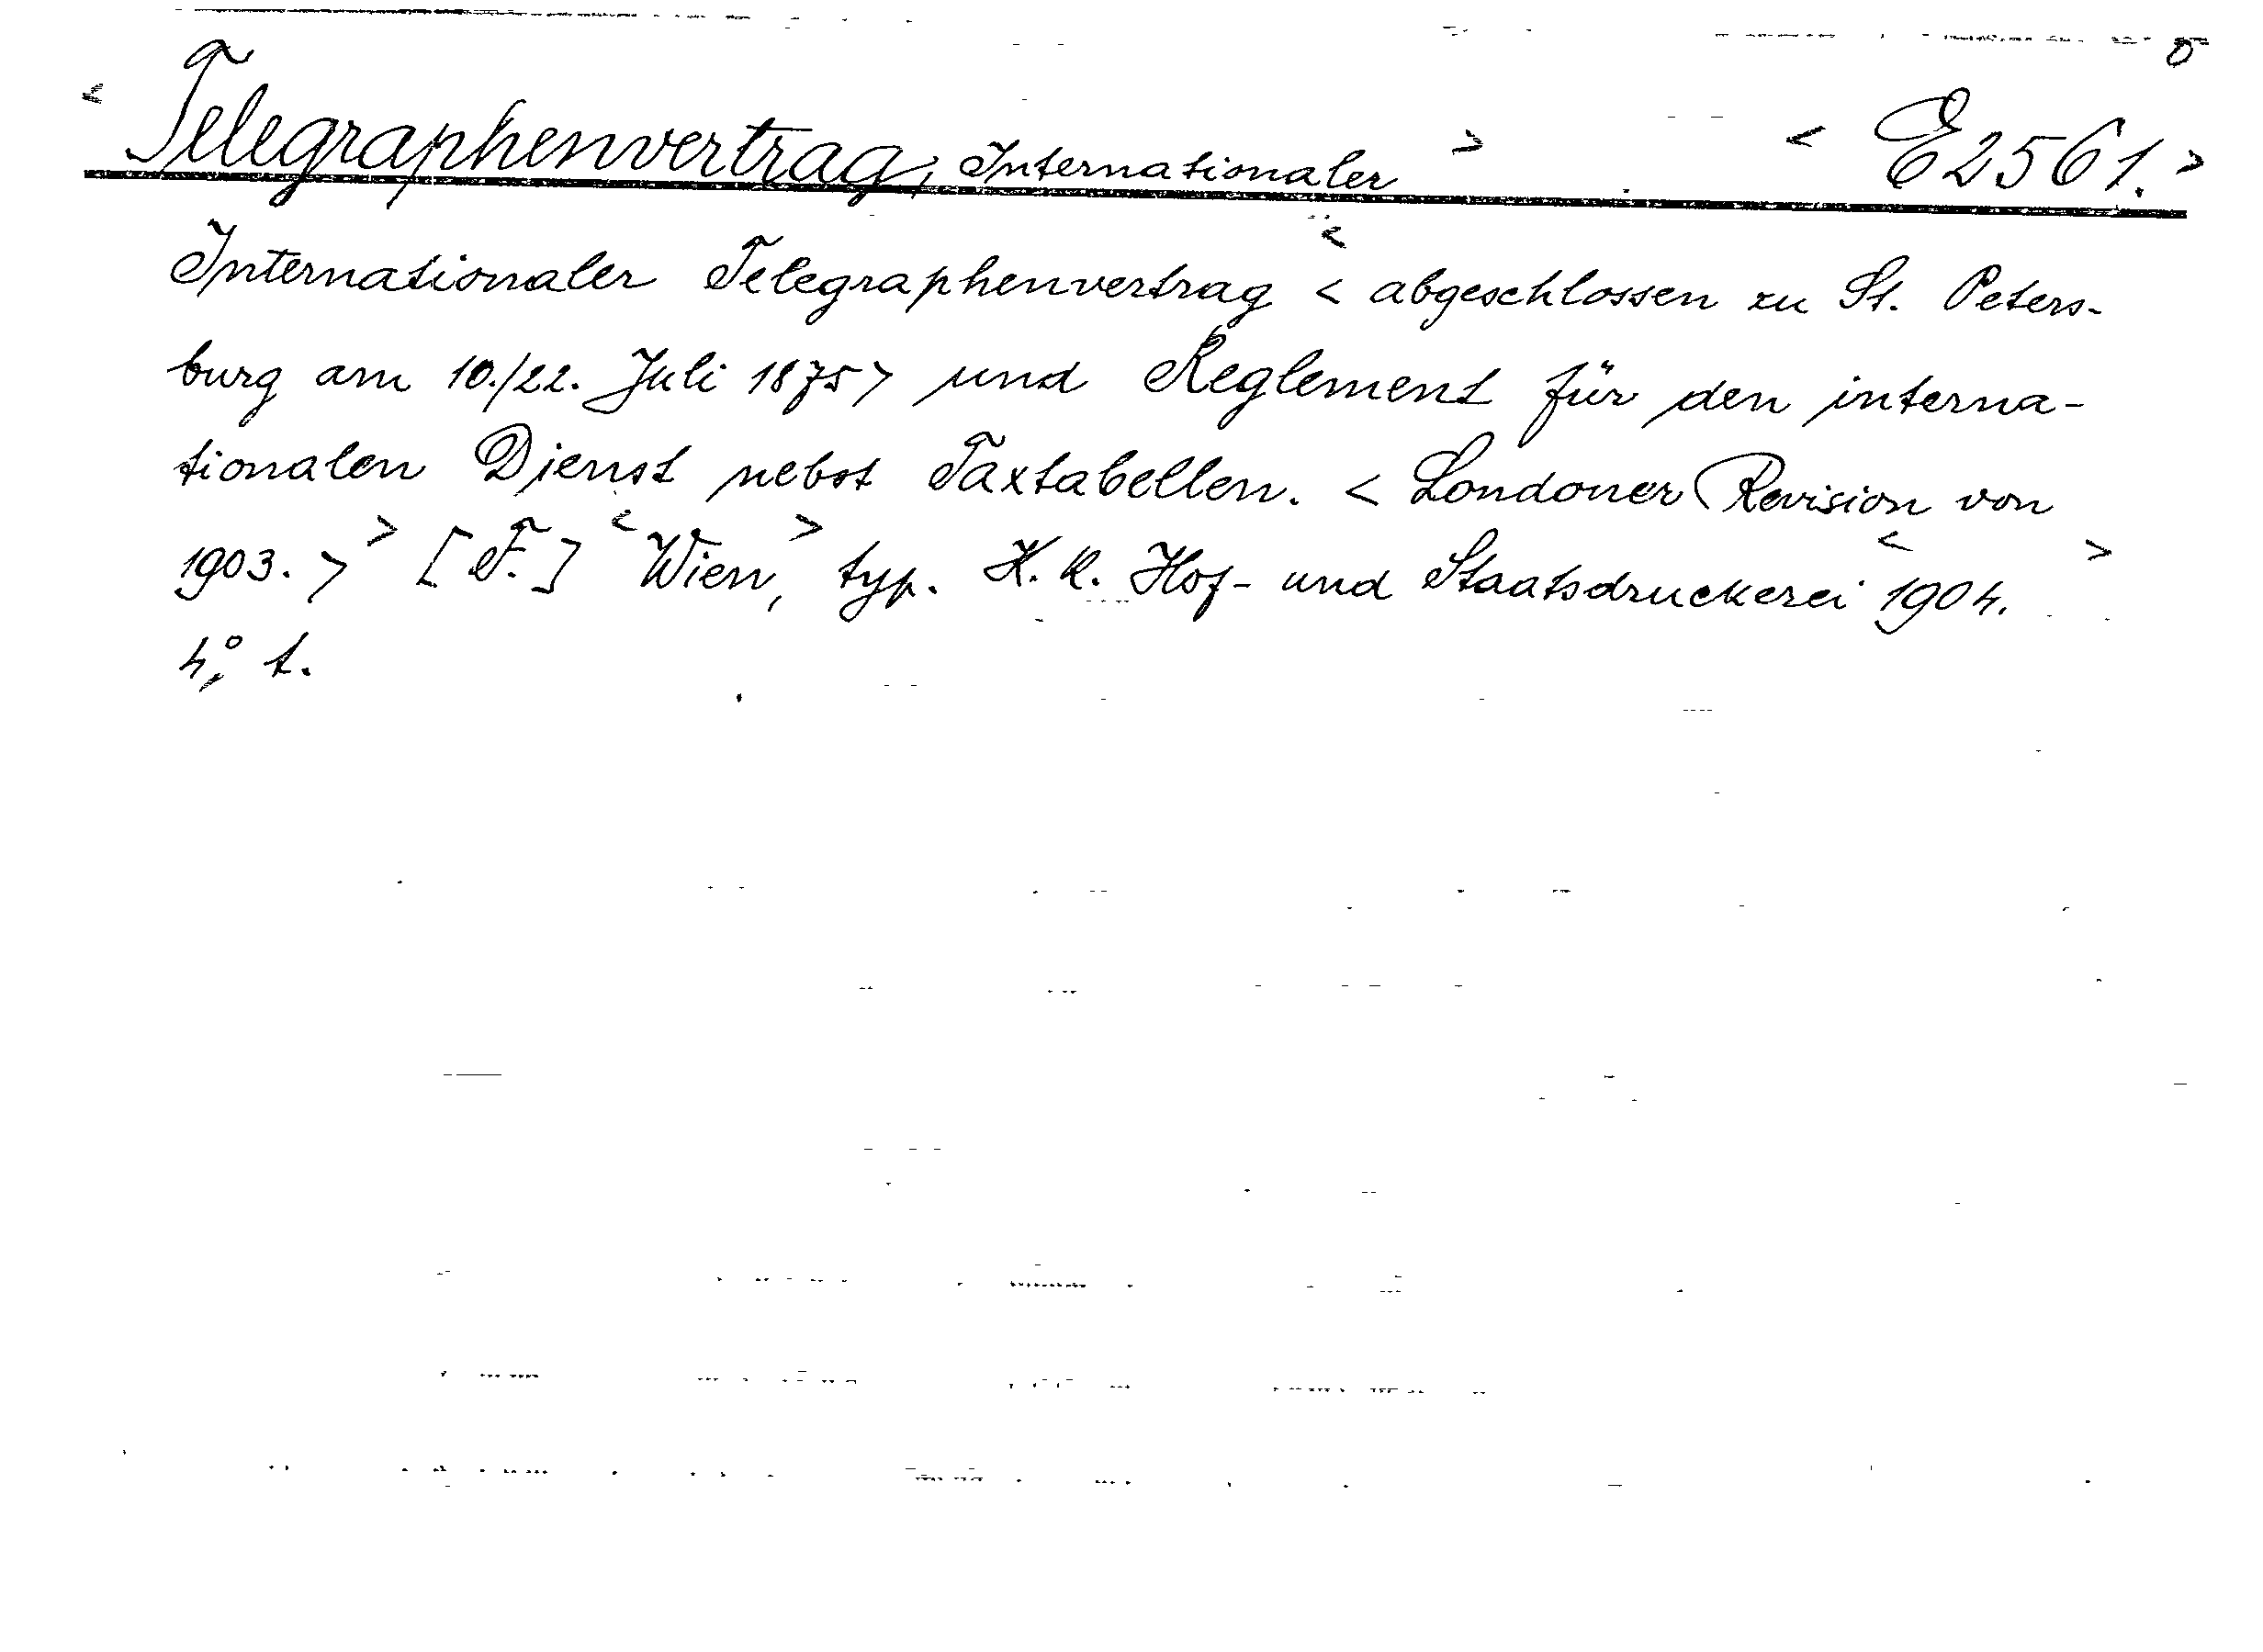 < Telegraphenvertrag, Internationaler > < E2561. >
Internationaler Telegraphenvertrag < abgeschlossen zu St. Peters-
burg am 10./22. Juli 1875 > und Reglement für den interna-
tionalen Dienst nebst Taxtabellen. < Londoner Revision von
1903. > > [F.] < Wien, > typ. K. k. Hof- und Staatsdruckerei < 1904. >
4°, t.